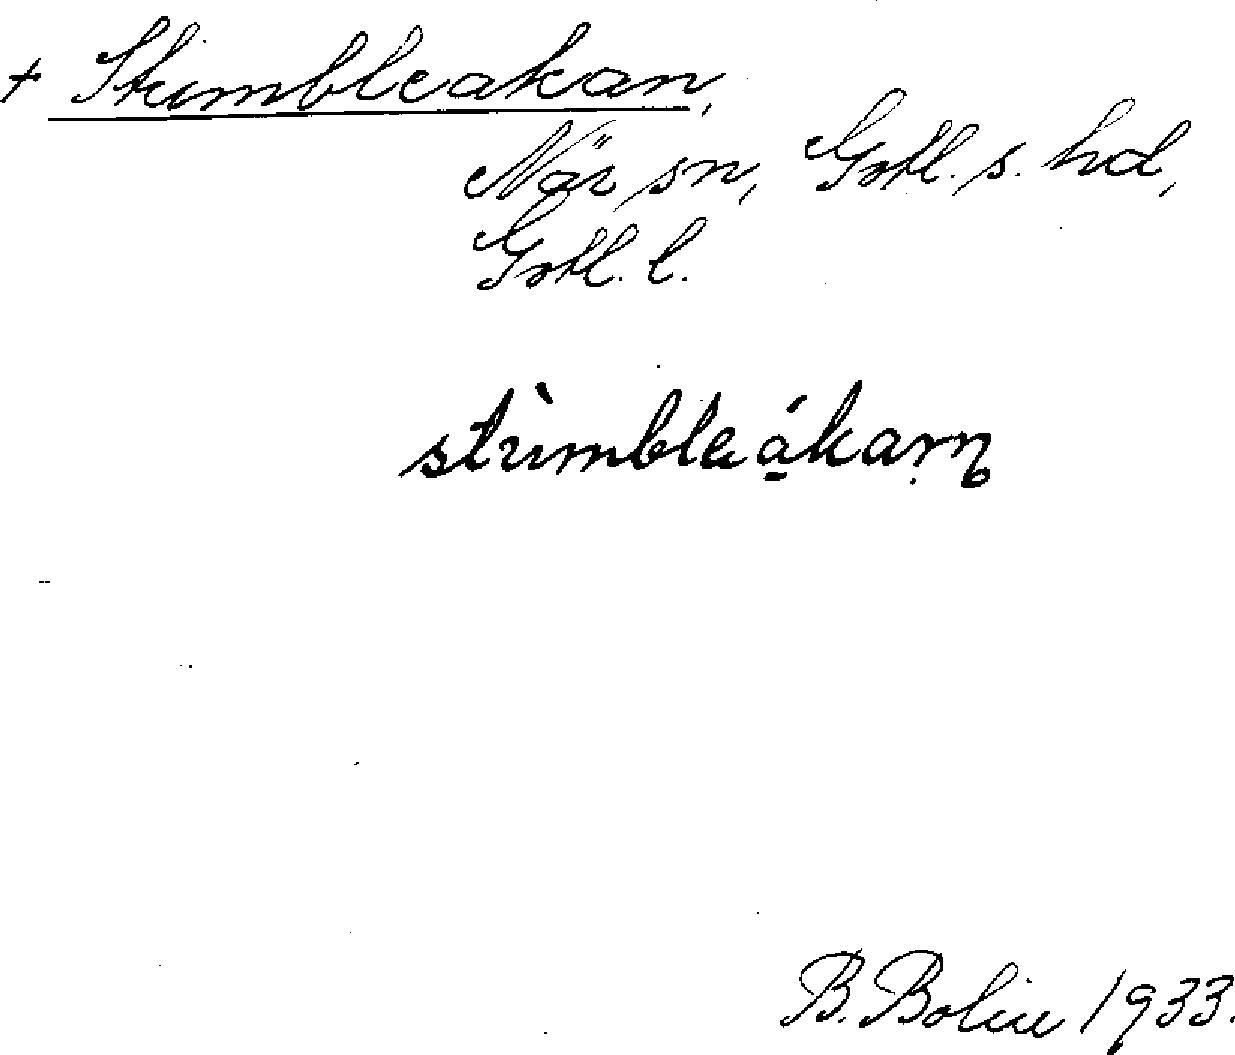 + Stumbleakan,
När sn, Gotl. s. hd,
Gotl. l.
stùmbleákarn
B. Bolin 1933.